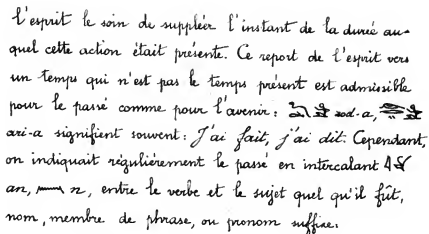 l'esprit le soin de suppléer l'instant de la durée au-
quel cette action était présente. Ce report de l'esprit vers
un temps qui n'est pas le temps présent est admissible
pour le passé comme pour l'avenir : sod-a,
ari-a signifient souvent : J'ai fait, j'ai dit. Cependant,
on indiquait régulièrement le passé en intercalant
an, n, entre le verbe et le sujet quel qu'il fût,
nom, membre de phrase, ou pronom suffixe.